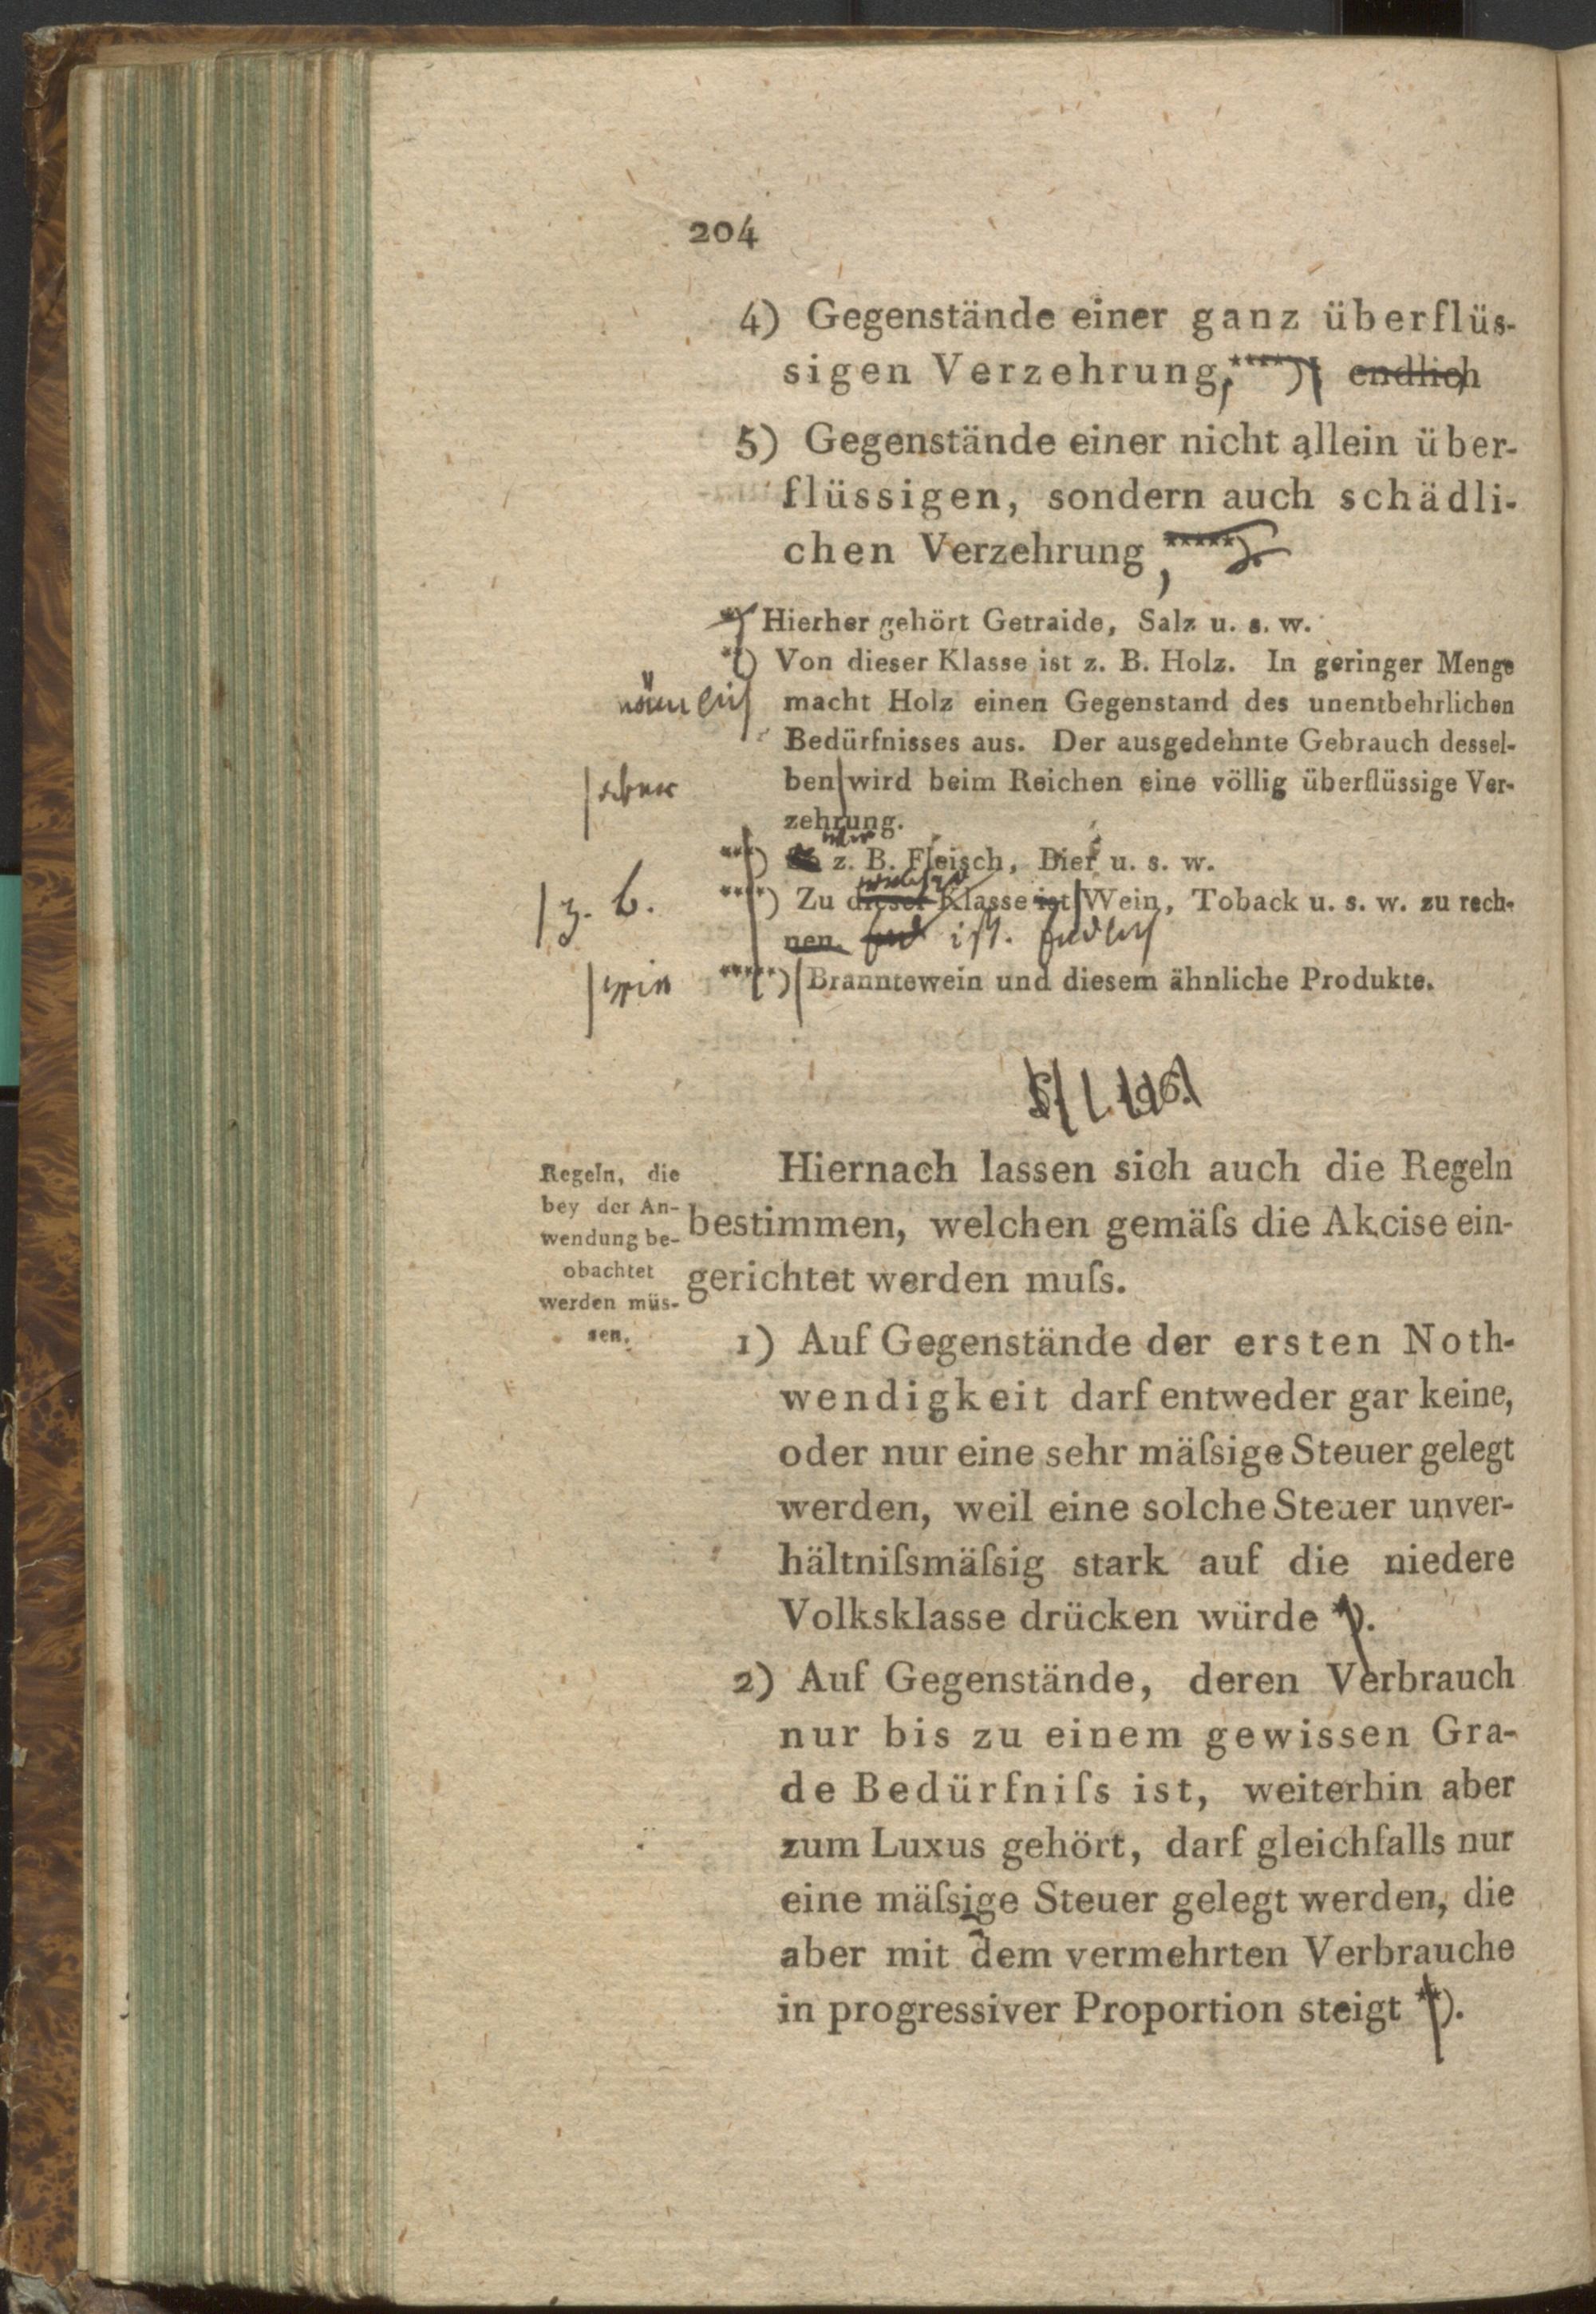 204
4) Gegenstände einer ganz überflüs-
sigen Verzehrung,****) endlich
5) Gegenstände einer nicht allein über-
flüssigen, sondern auch schädli-
chen Verzehrung *****).
*) Hierher gehört Getraide, Salz u. s. w.
**) Von dieser Klasse ist z. B. Holz. In geringer Menge
nämlich
macht Holz einen Gegenstand des unentbehrlichen
Bedürfnisses aus. Der ausgedehnte Gebrauch dessel-
aber
ben wird beim Reichen eine völlig überflüssige Ver-
zehrung.
***) z. B. Fleisch, Bier u. s. w.
z. B.
****) Zu dieser Klasse ist Wein, Toback u. s. w. zu rech-
nen. ist. endlich
*****) Branntewein und diesem ähnliche Produkte.
§. 196.
Regeln, die
bey der An-
wendung be-
obachtet
werden müs-
sen.
Hiernach lassen sich auch die Regeln
bestimmen, welchen gemäſs die Akcise ein-
gerichtet werden muſs.
1) Auf Gegenstände der ersten Noth-
wendigkeit darf entweder gar keine,
oder nur eine sehr mäſsige Steuer gelegt
werden, weil eine solche Steuer unver-
hältniſsmäſsig stark auf die niedere
Volksklasse drücken würde *).
2) Auf Gegenstände, deren Verbrauch
nur bis zu einem gewissen Gra-
de Bedürfniſs ist, weiterhin aber
zum Luxus gehört, darf gleichfalls nur
eine mäſsige Steuer gelegt werden, die
aber mit dem vermehrten Verbrauche
in progressiver Proportion steigt **).